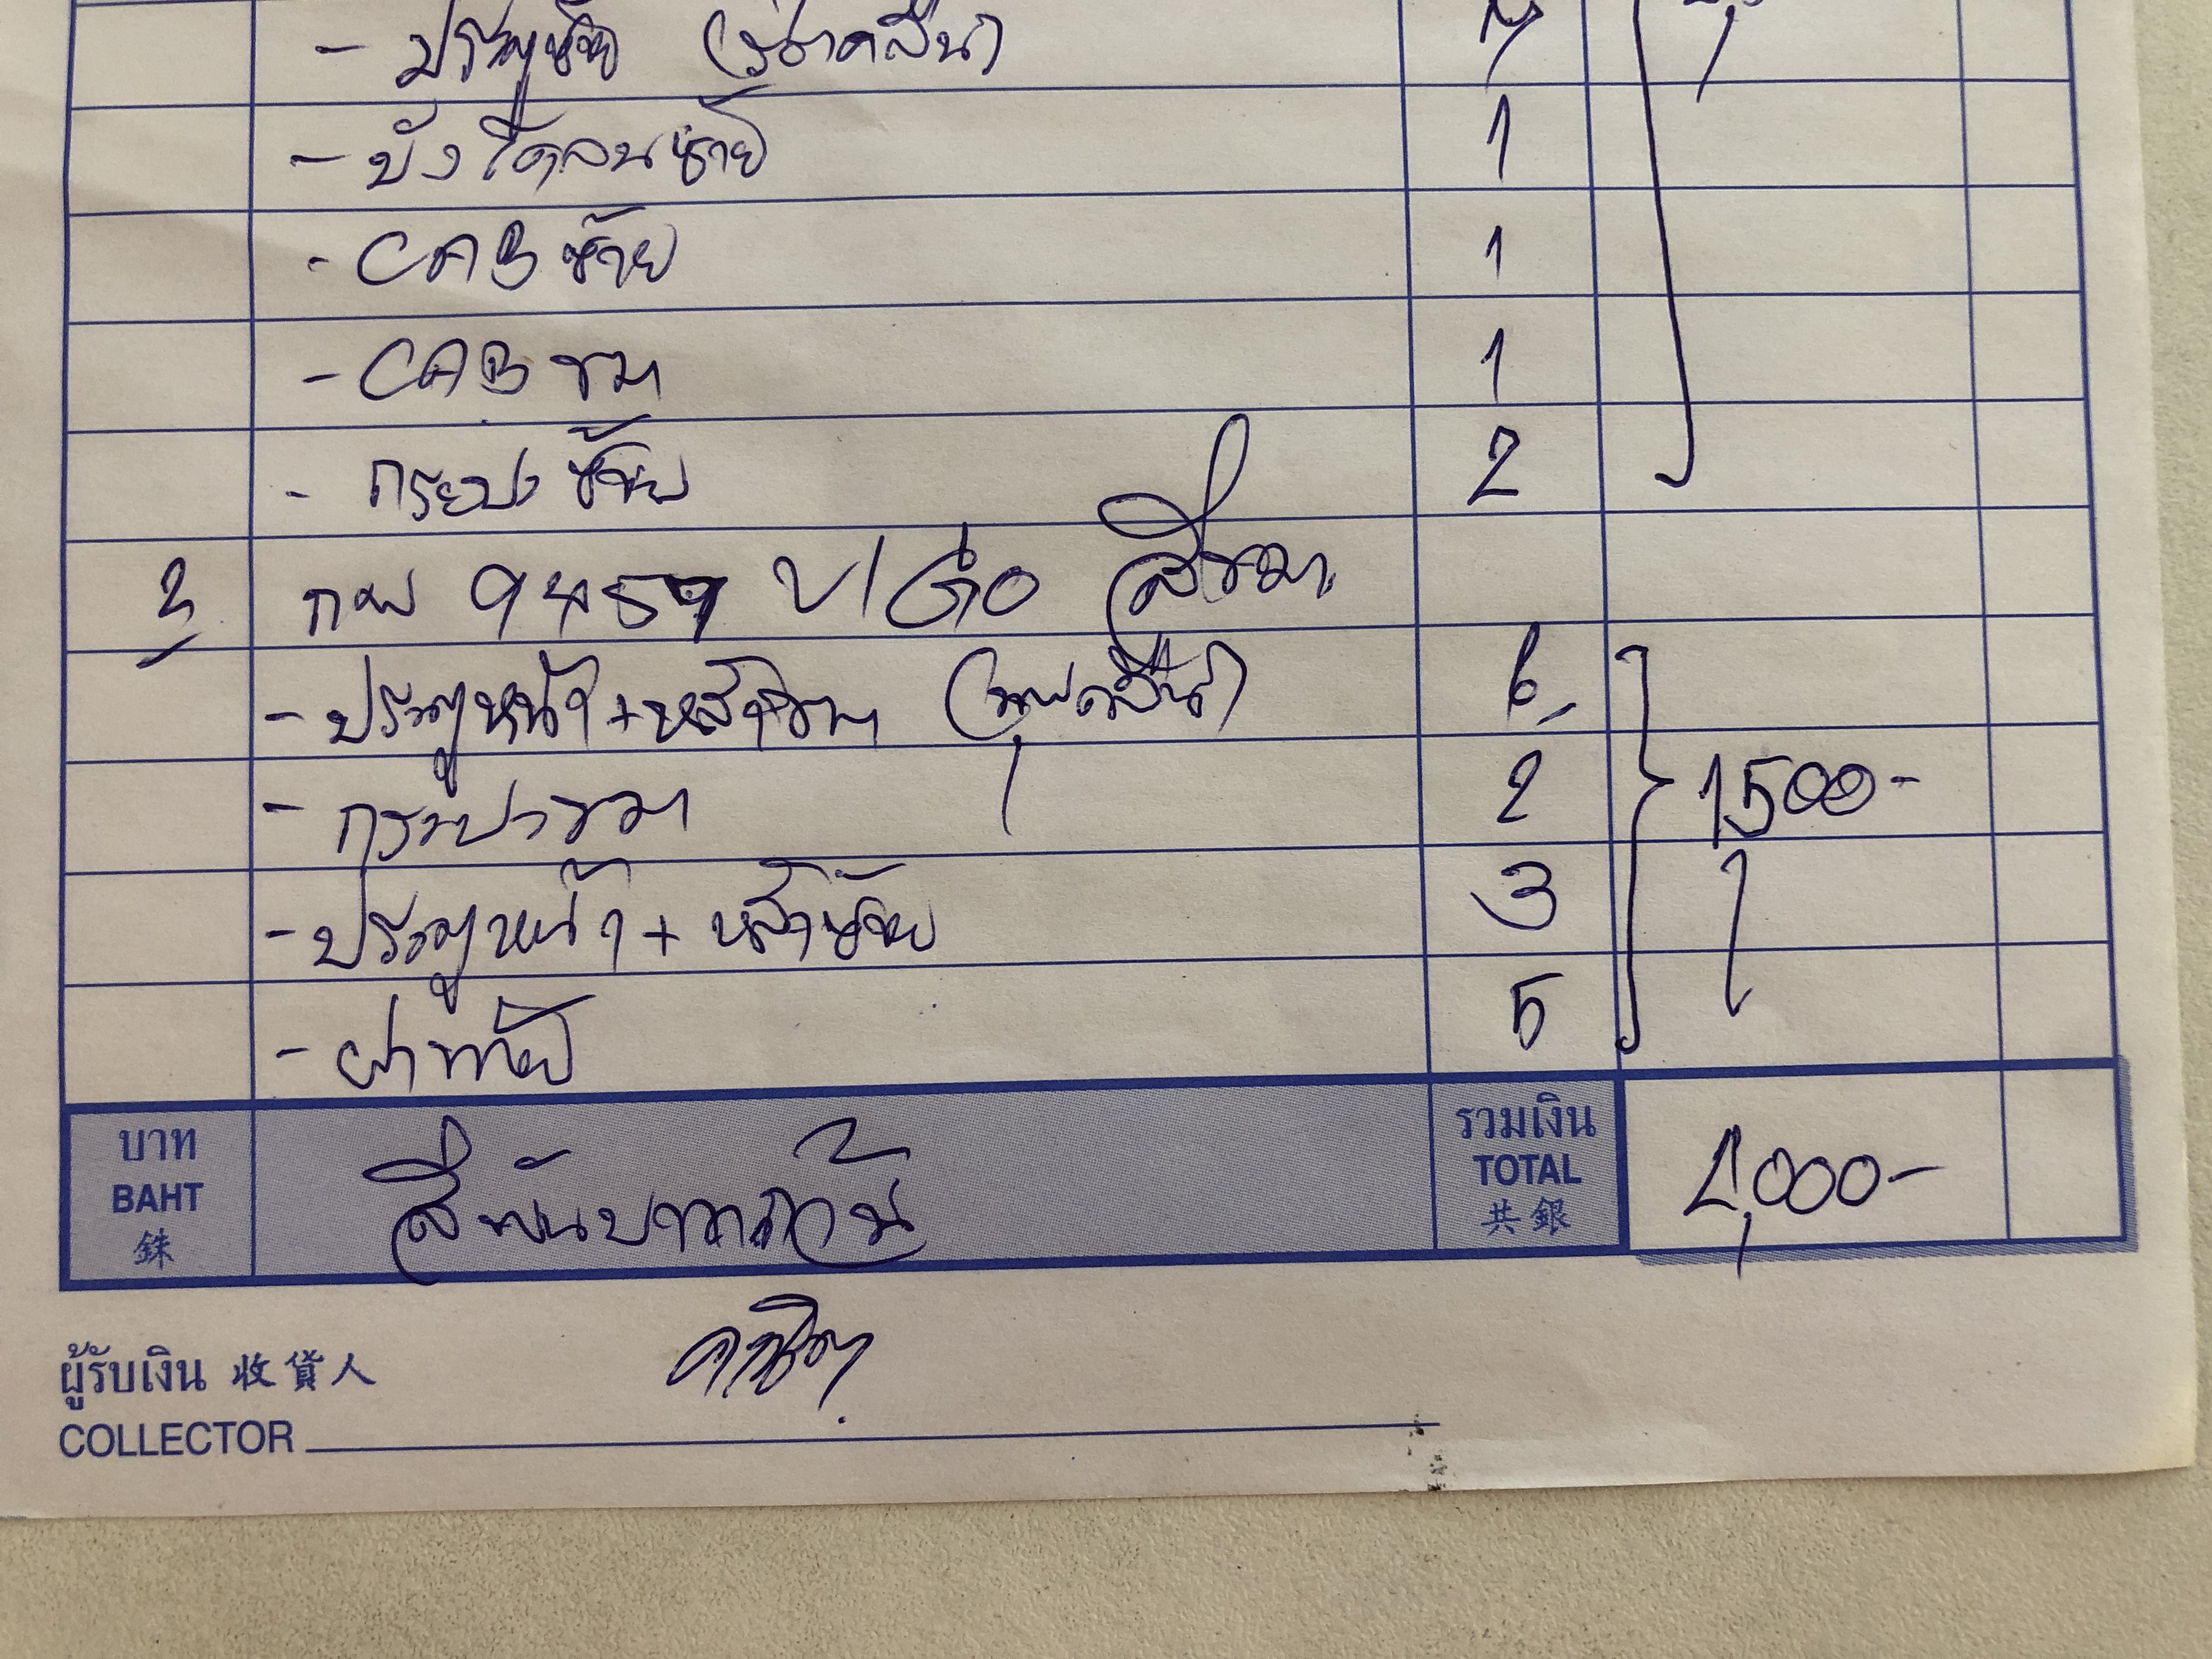 - ประตูซ้าย 4
- บังโคลนซ้าย 1
- CAB ซ้าย 1
- CAB ขวา 1
- กระบะซ้าย 2
2 กพ 9459 สีขาว
- ประตูหน้า+หลังขวา 6
- กระบะขวา 2 1500-
- ประตูหน้า + หลังซ้าย 3
- ฝาท้าย 5
บาท สี่พันบาทถ้วน รวมเงิน
BAHT TOTAL 4,000-
銖 共銀
ผู้รับเงิน 收貨人
COLLECTOR